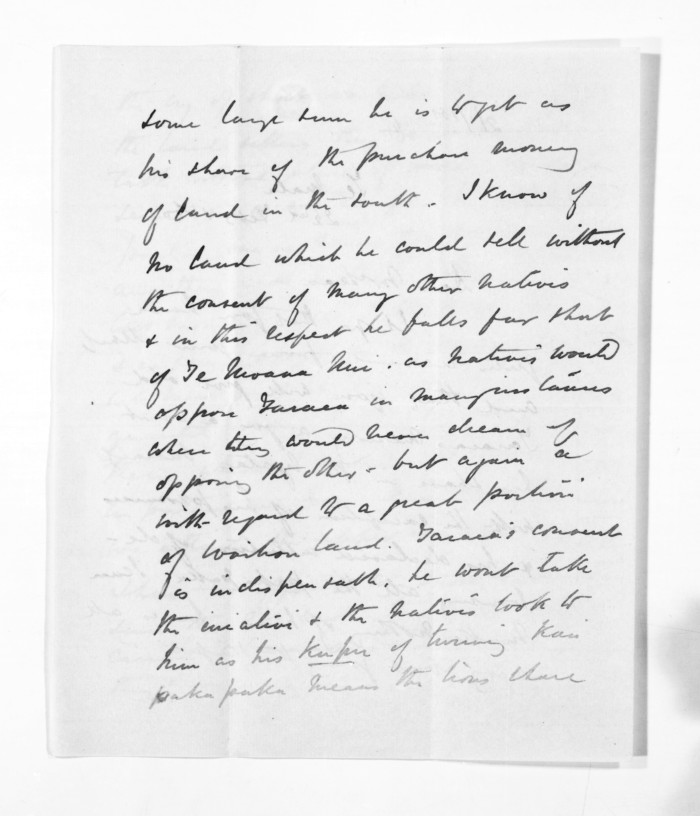 some large sum he is to get as
his share of the purchase money
of land in the south - I know of
no land which he could sell without
the consent of many other natives
& in this respect he falls far short
of Te Moana Nui. as natives would
oppose Tareha in many instances
when they would never dream of
opposing the other - but again
with regard to a great portion
of land. Tareha's consent
is indispensable, he wont take
the iniative & the natives look to
him as his Keeper of Kai
paka paka means the lions share